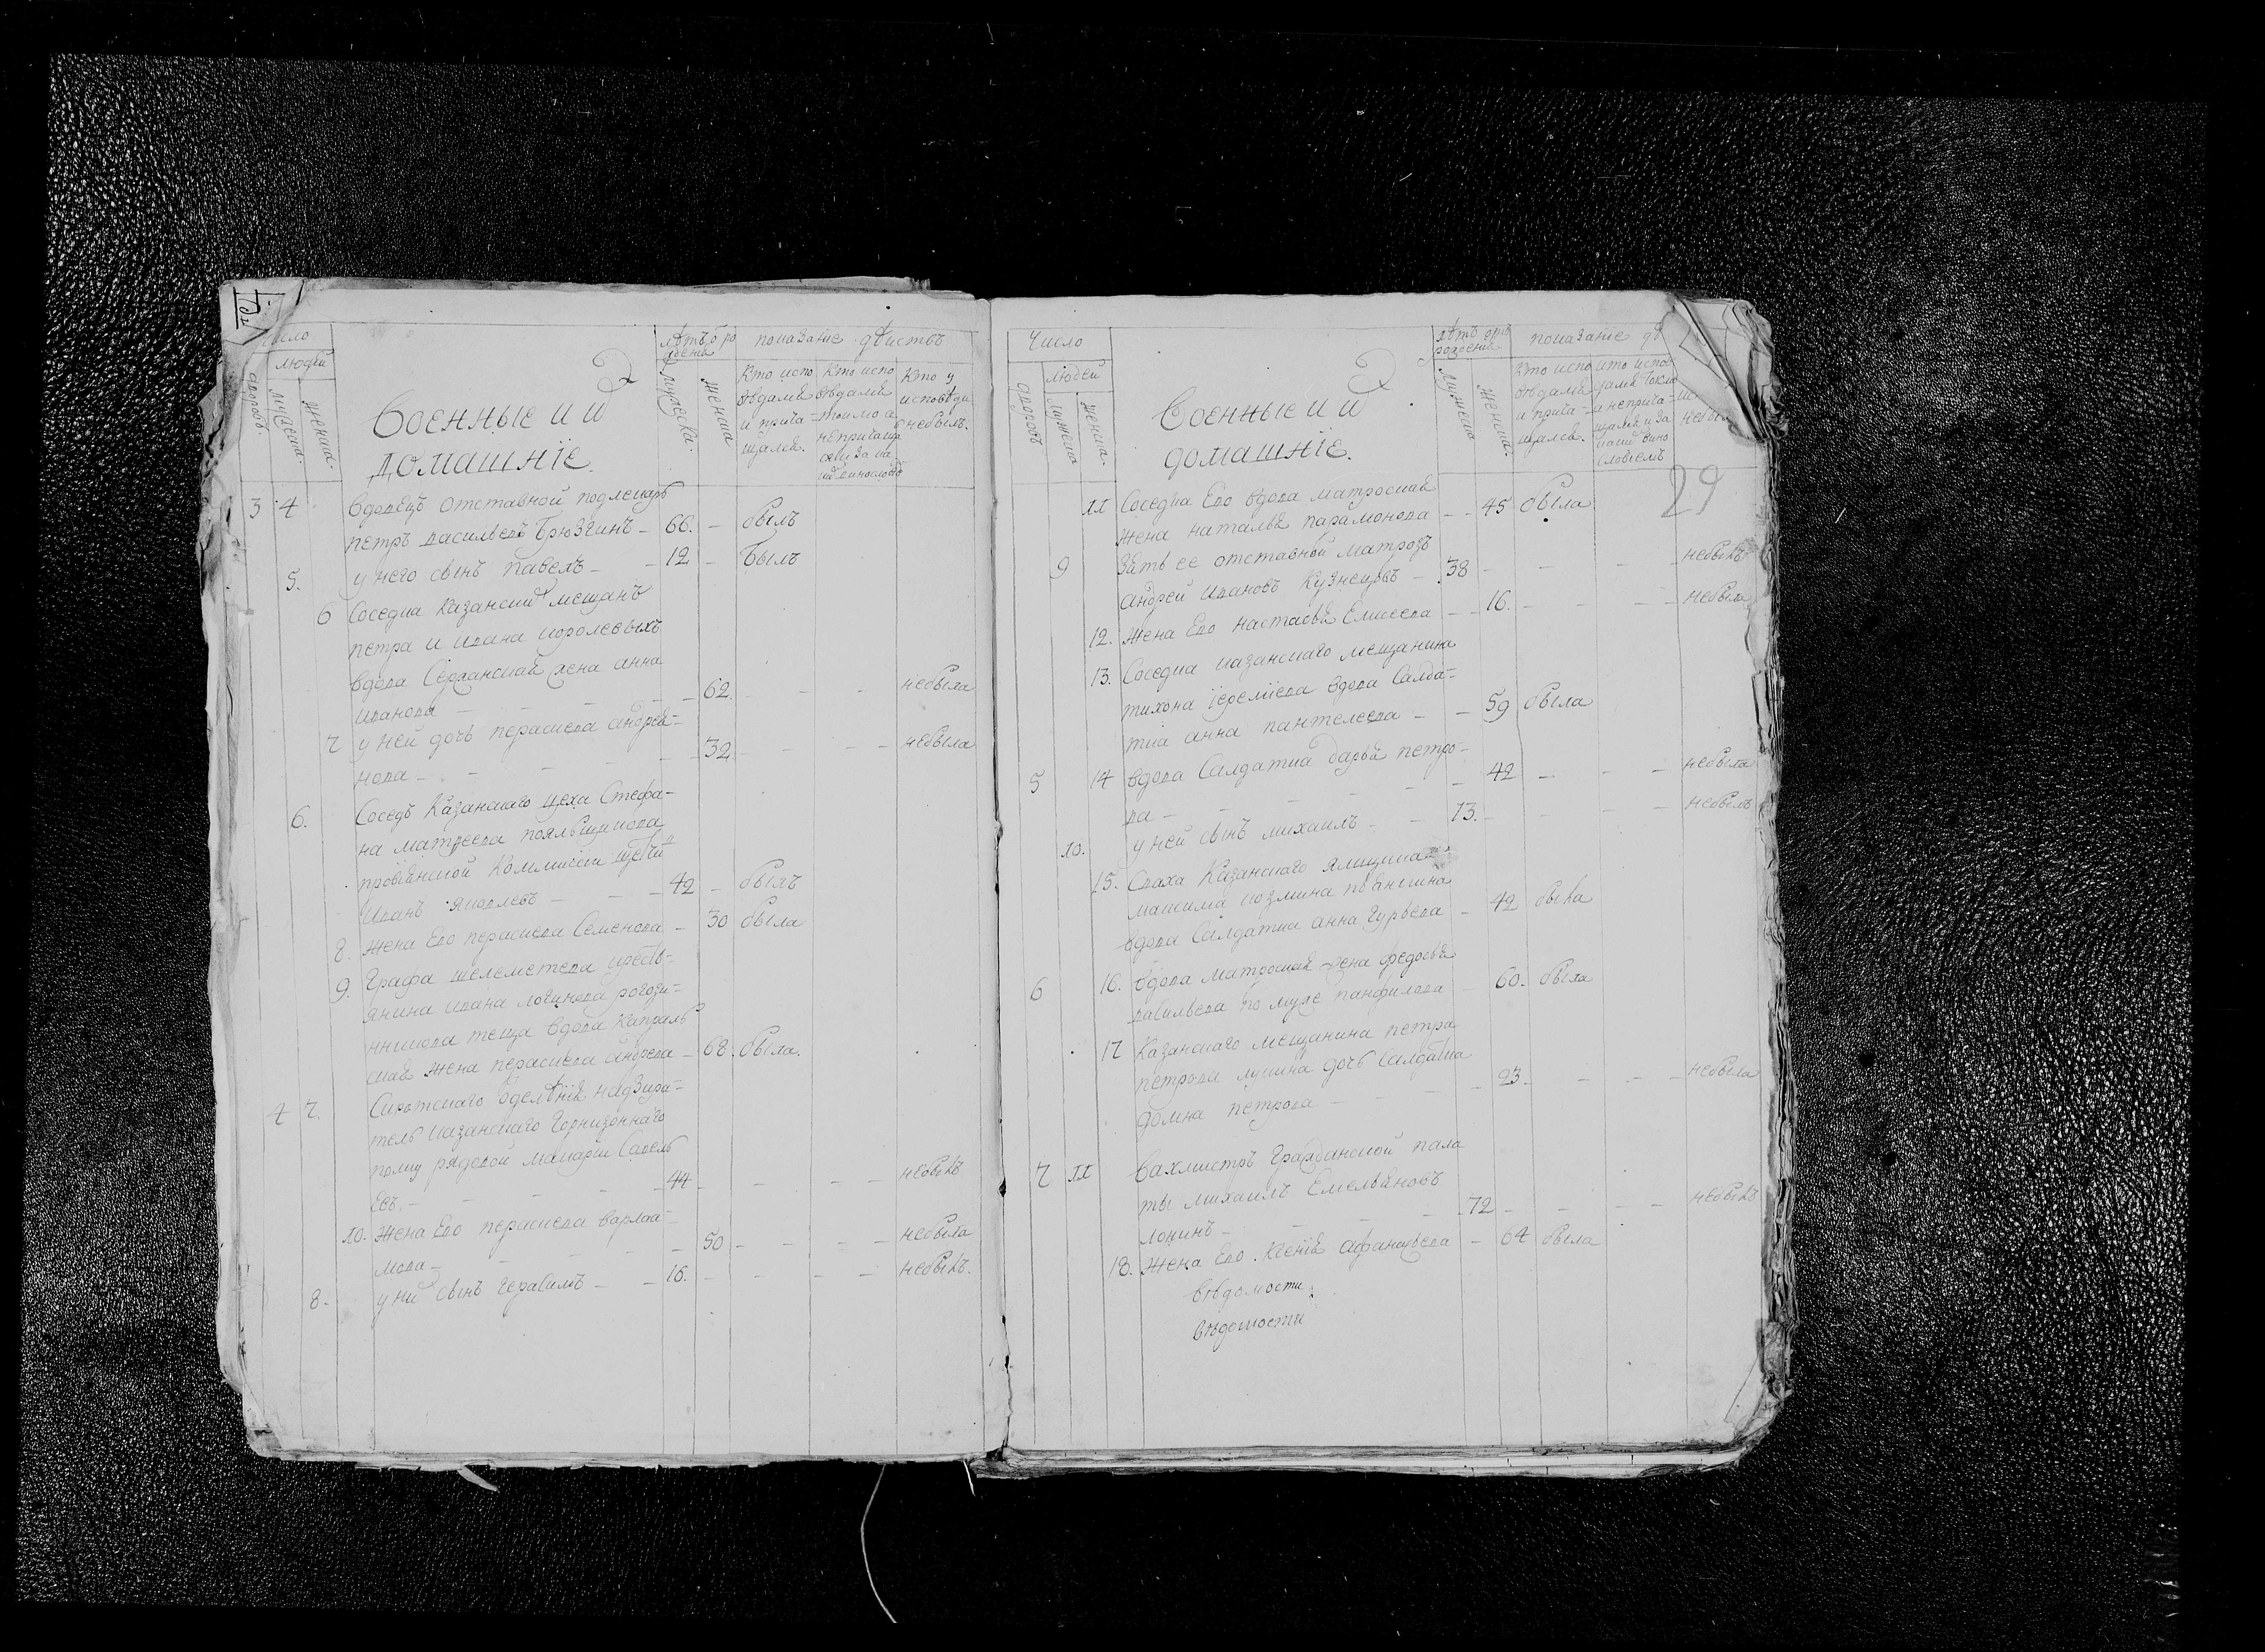 Число
людей
дворовъ.
мужеска.
женска.
2
Военные и и
домашнїе.
лѣтъ о ро
жденїя
мужеска.
женска
показанїе дѣйствъ
Кто испо
вѣдался
и прича-
щался.
Кто испо
вѣдался
токмо а
непричаща
Кто у
исповѣди
небылъ.
3 4 вдовецъ отставной подлекарь
петръ васильевъ Брюзгинъ - 66. - былъ
5. у него сынъ павелъ - - 12 - былъ
6 Соседка Казанскихъ мещанъ
петра и ивана королевыхъ
вдова Сержанская жена анна
иванова - 62. - - - небыла
7 у ней дочь перасковья андрея-
нова - 32 - - - небыла
6. Соседъ Казанскаго цеха Стефа-
на матвеева
провїянской Коммисїи
Иванъ яковлевъ - 42 - былъ
8. жена Ево перасковья Семенова - 30 была
9. Графа шелеметева кресть-
янина ивана логинова рогожи-
нникова теща вдова Капраль
ская жена перасковья андреева - 68. была.
4 7. Сиротскаго оделѣнїя надзира-
тель казанскаго Горнизоннаго
полку рядовой макарїй Савель
евъ. - 44 - - - небылъ
10. жена Ево перасковья варлаа-
мова - 50 - - - небыла
8. у них сынъ герасимъ - - 16. - - - небылъ.
Число
людей
дворовъ
мужеска
женска.
2
Военные и и
домашнїе.
лѣтъ отъ
рождения
мужеска
женска.
показанїе дѣ
Кто испо
вѣдался
и прича-
щался.
кто испов
дался токмо
и неприча-
щался и за
каким вино
словїемъ
небыл
29
11 Соседка Ево вдова матроская
жена наталья парамонова - - 45 была
9 Зять ее отставной матрозъ
андрей ивановъ Кузнецовъ - 38 - - - небылъ
12. жена Ево настасья Елисеева - - 16. - - - небыла
13. Соседка казанскаго мещанина
тихона їеремїева вдова Салда-
тка анна пантелеева - - 59 была
5 14 вдова Салдатка дарья петро-
ва - 42 - - - небыла
10. у ней сынъ михаилъ - - 13. - - - небылъ
15. Сваха Казанскаго ямщика
максима козмина
вдова Салдатка анна Гурьева - 42 была
6 16. вдова матроская жена федосья
васильева по муже панфилова - 60. была
17 Казанскаго мещанина петра
петрова лукина дочь Салдатка
домна петрова - - 23 - - - небыла
7 11 Вахмистръ Гражданской пала
ты михаилъ Емельяновъ
локинъ - 72 - - - небылъ
18. Жена Ево Ксенїя афанасьева - 64 была
вѣдомости
вѣдомости